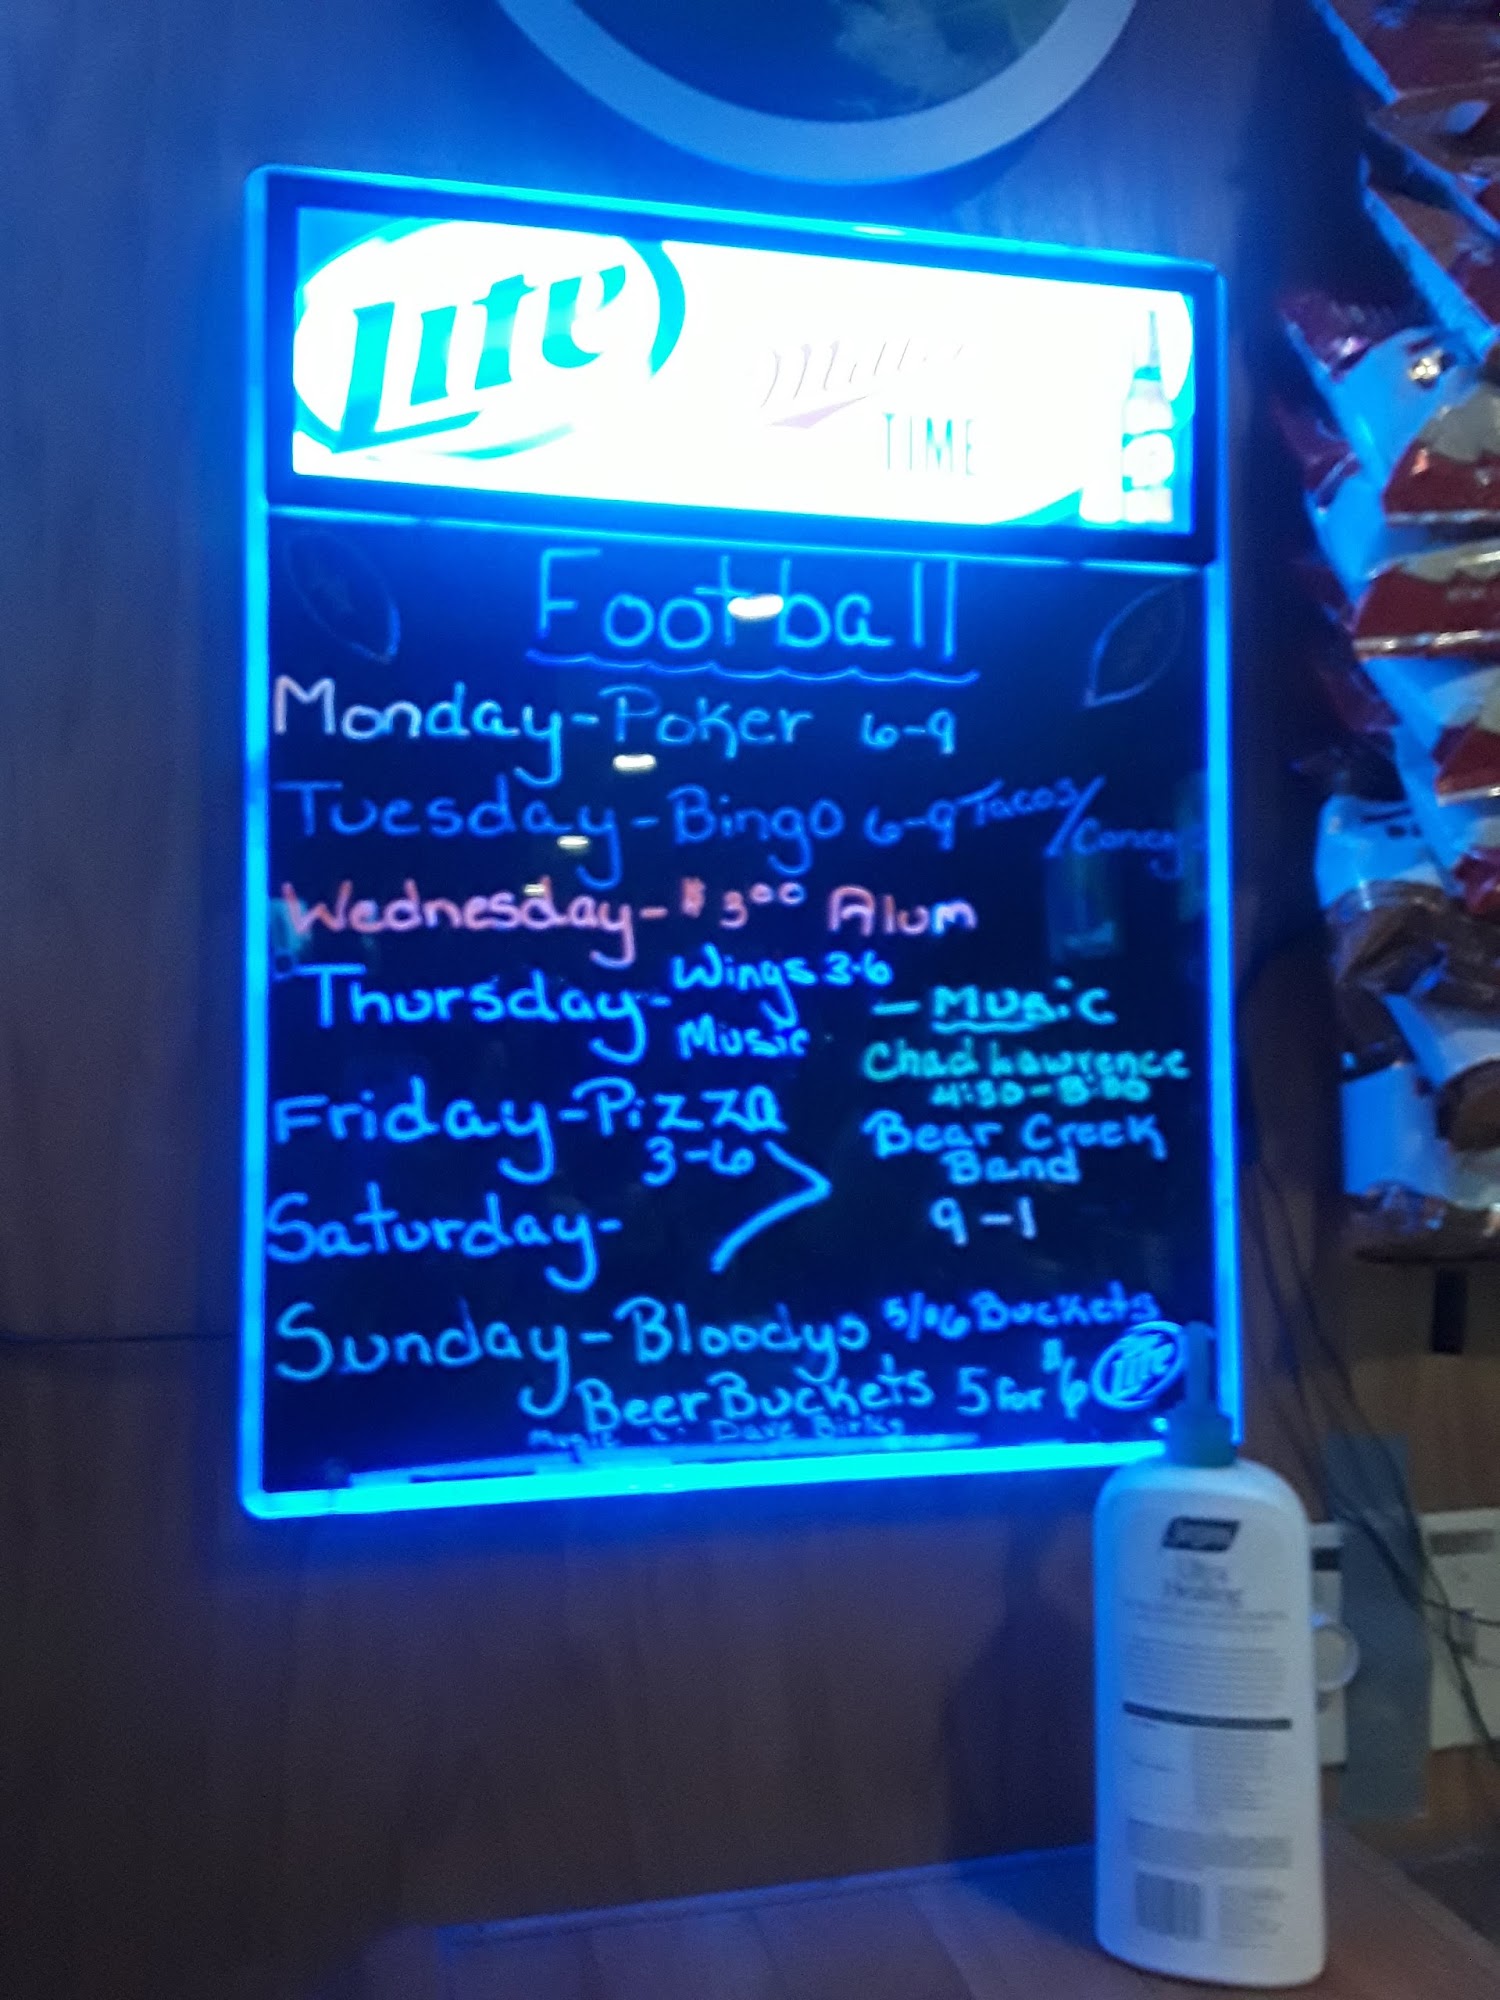 Lite
Miller
TIME
Football
Monday-Poker 6-9
Tuesday-Bingo 6-9 Tacos/Coney
Wednesday-$3.00 Alum
Thursday- Wings 3-6
Music
- Music
Chad Lawrence
4:30-8:30
Friday-Pizza
3-6
Bear Creek
Band
9-1
Saturday-
Sunday-Bloodys 5/$6 Buckets
Beer Buckets 5 for $6
Lite
Music Dave Birks
Ultra
Healing